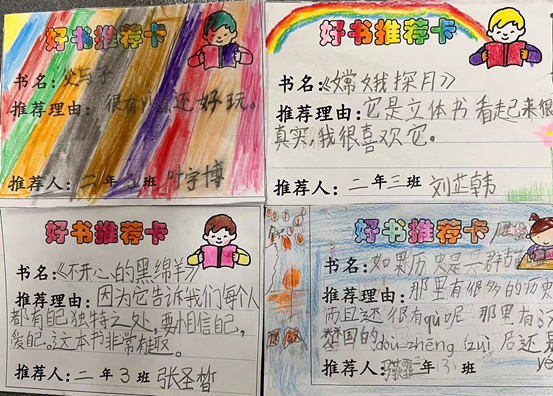 好书推荐卡
书名:父与子
推荐理由:很有 还好玩。
推荐人:二年 班 叶宇博
好书推荐卡
书名:《嫦娥探月》
推荐理由:它是立体书看起来很
真实,我很喜欢它。
推荐人:二年三班 刘芷韩
好书推荐卡
书名:《不开心的黑绵羊》
推荐理由:因为它告诉我们每个人
都有自己独特之处,要相信自己,
爱自己。这本书非常有趣。
推荐人:二年3班 张圣晳
好书推荐卡
书名:如果历史是一群
推荐理由:那里有很多的历史
而且还很有qù呢 那里有
楚国的dòu zhēng zuì后还
推荐人: 年 班